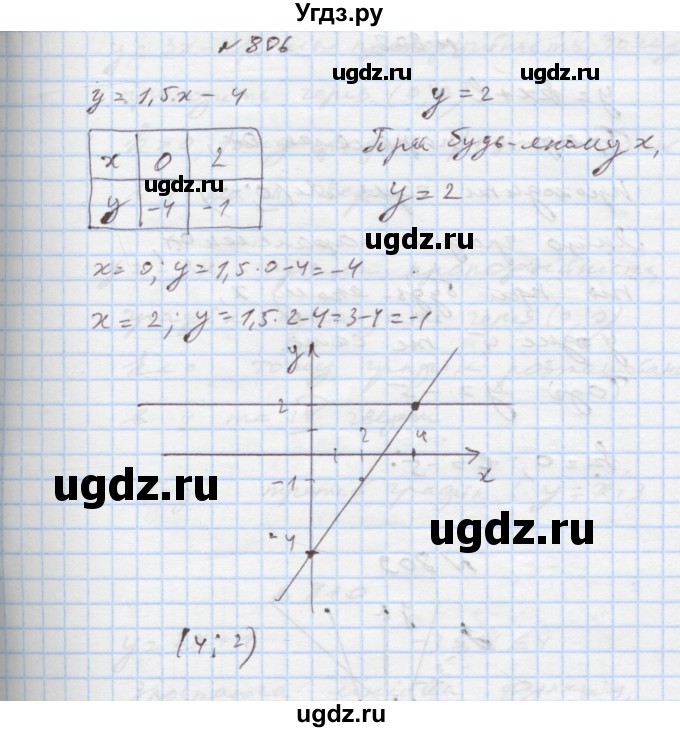 Угдз.ру
№ 806
ugdz.ru ugdz.ru
y = 1,5x - 4 y = 2
x 0 2
y -4 -1
ugdz.ru
При будь-якому x,
y = 2
ugdz.ru
x = 0; y = 1,5 · 0 - 4 = -4
x = 2; y = 1,5 · 2 - 4 = 3 - 4 = -1
y
2
2 4
x
-1
ugdz.ru
ugdz.ru
-4
(4; 2)
ugdz.ru
ugdz.ru